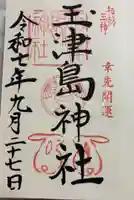 和歌三神
幸先開運
玉津島神社
令和七年九月二十七日